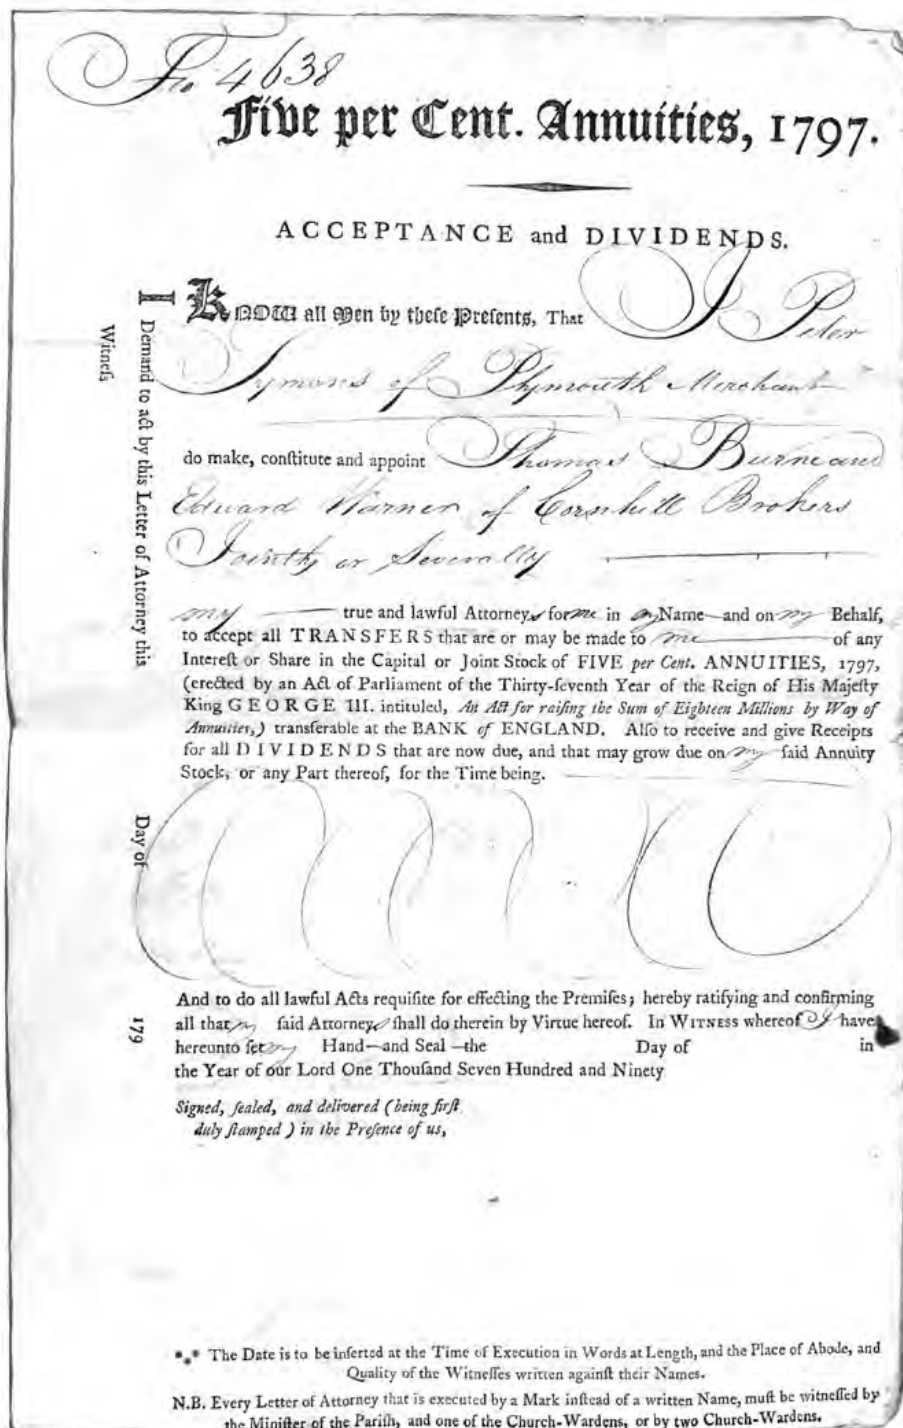 Fo. 4638
Five per Cent. Annuities, 1797.
ACCEPTANCE and DIVIDENDS.
KNOW all Men by theſe Preſents, That I Peter
Symons of Plymouth Merchant
do make, conſtitute and appoint Thomas Burne and
Edward Warner of Cornhill Brokers
Jointly or Severally
my true and lawful Attorneys for me in my Name and on my Behalf,
to accept all TRANSFERS that are or may be made to me of any
Intereſt or Share in the Capital or Joint Stock of FIVE per Cent. ANNUITIES, 1797,
(erected by an Act of Parliament of the Thirty-ſeventh Year of the Reign of His Majeſty
King GEORGE III. intituled, An Act for raiſing the Sum of Eighteen Millions by Way of
Annuities,) transferable at the BANK of ENGLAND. Alſo to receive and give Receipts
for all DIVIDENDS that are now due, and that may grow due on my ſaid Annuity
Stock, or any Part thereof, for the Time being.
And to do all lawful Acts requiſite for effecting the Premiſes; hereby ratifying and confirming
all that my ſaid Attorneys ſhall do therein by Virtue hereof. In WITNESS whereof I have
hereunto ſet my Hand and Seal the Day of in
the Year of our Lord One Thouſand Seven Hundred and Ninety
Signed, ſealed, and delivered (being firſt
duly ſtamped) in the Preſence of us,
*⁎* The Date is to be inſerted at the Time of Execution in Words at Length, and the Place of Abode, and
Quality of the Witneſſes written againſt their Names.
N.B. Every Letter of Attorney that is executed by a Mark inſtead of a written Name, muſt be witneſſed by
the Miniſter of the Pariſh, and one of the Church-Wardens, or by two Church-Wardens.
I Demand to act by this Letter of Attorney this Day of 179
Witneſs